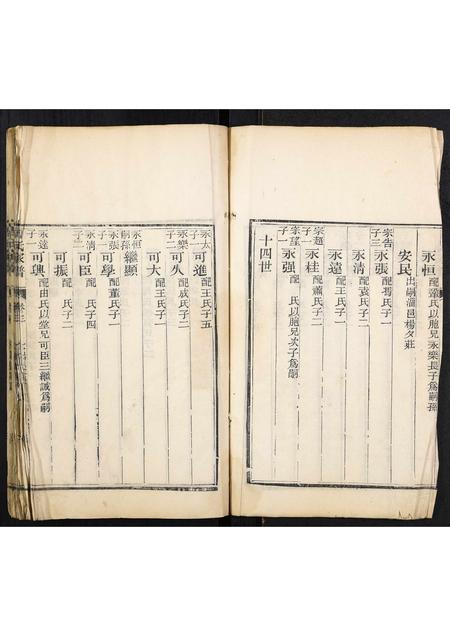 永恒 配 氏以胞兄永樂長子爲嗣孫
安民 出嗣 邑楊夕莊
宗告子三 永張 配馬氏子一
永清 配袁氏子二
永遠 配王氏子一
宗超子一 永桂 配蕭氏子二
宗 子一 永强 配 氏以胞兄次子爲嗣
十四世
永太子一 可進 配王氏子五
永樂子二 可久 配成氏子二
可大 配王氏子一
永恒嗣孫 繼顯
永張子一 可學 配董氏子一
永清子二 可臣 配 氏子四
可振 配 氏子二
永遠子一 可興 配由氏以堂兄可臣三繼誠爲嗣
氏家譜 卷三